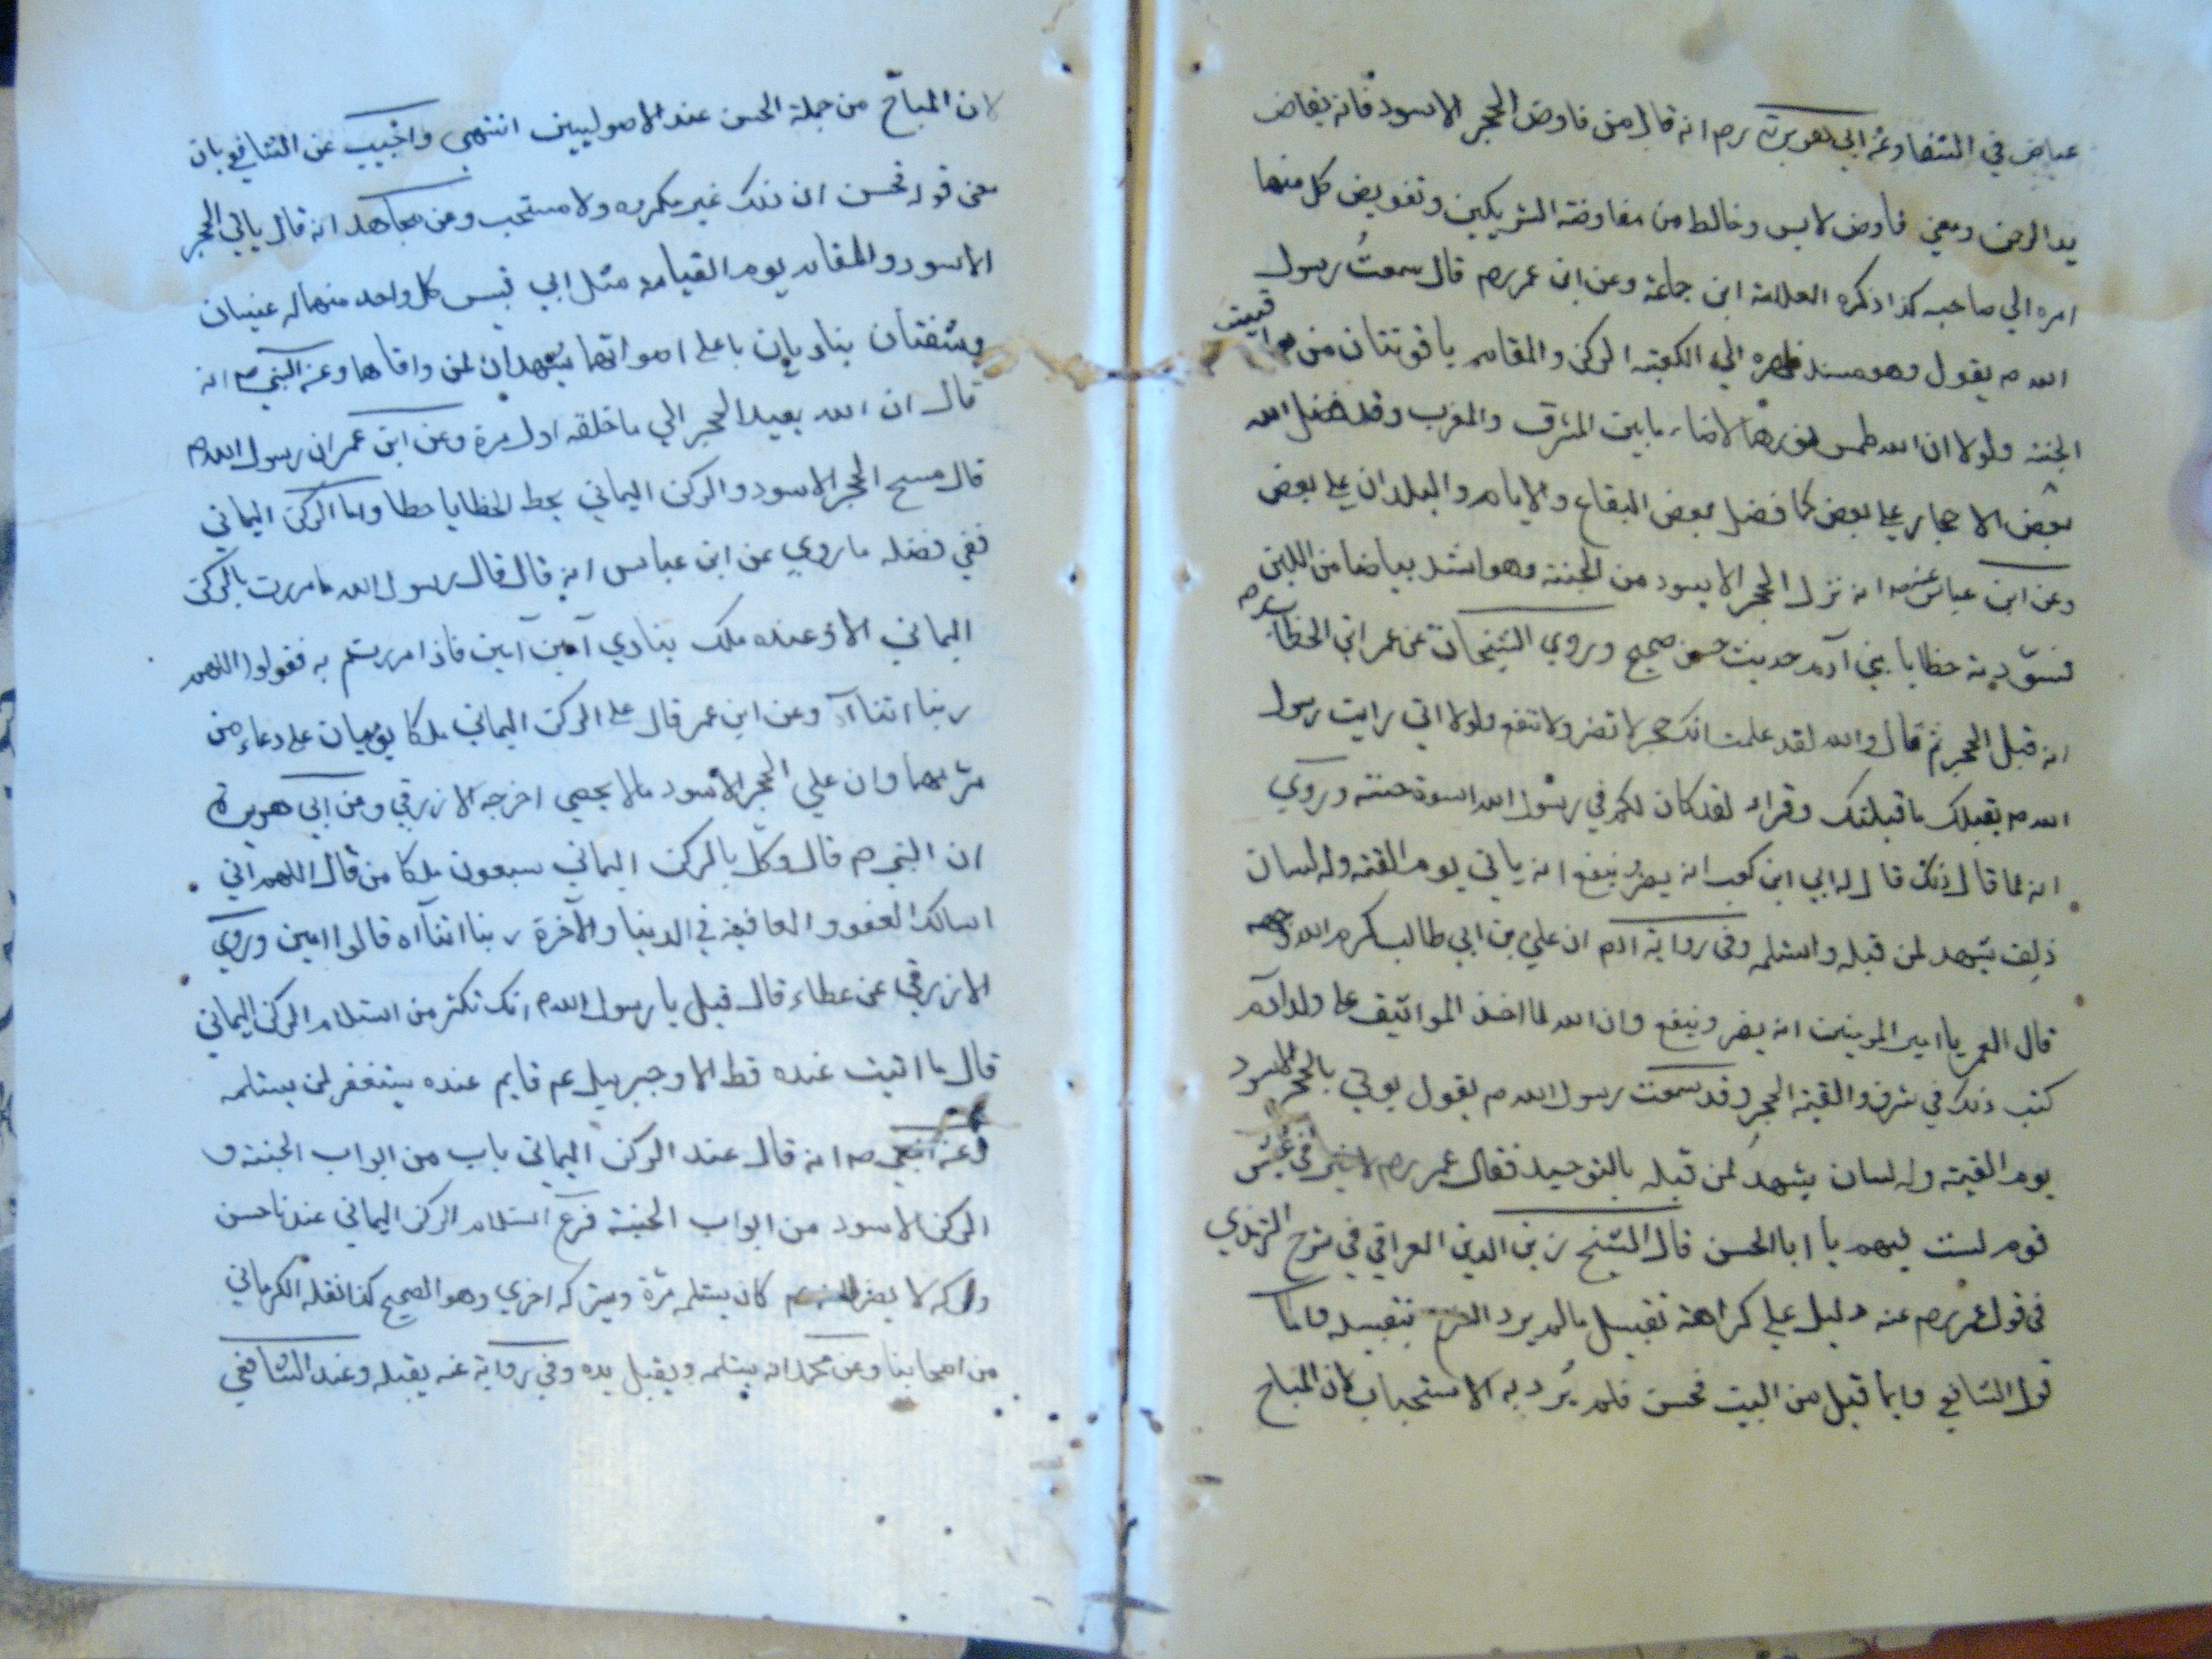 عياض في الشفا وعن ابي هويرة رم انه قال من فاوض الحجر الاسود فانه يفاض
يد الرحمن ومعني فاوض لابس وخالط من مفاوضة الشريكين وتفويض كل منهما
امره الي صاحبه كذا ذكره العلامة ابن جماعة وعن ابن عمر رم قال سمعتُ رسول
الله م يقول وهو مسند ظهره الي الكعبة الركن والمقام ياقوتتان من يواقيت
الجنة ولولا ان الله طمس نورهما لاضاء ما بين المشرق والمغرب وقد فضل الله
بعض الاحجار علي بعض كما فضل بعض البقاع والايام والبلدان علي بعض
وعن ابن عباس عنه م انه نزل الحجر الاسود من الجنة وهو اشد بياضا من اللبن
فسوّدته خطايا بني آدم حديث حسن صحيح وروي الشيخان عن عمر ابن الخطاب رم
انه قبل الحجر ثم قال والله لقد علمت انك حجر لا تضر ولا تنفع ولولا اني رايت رسول
الله م يقبلك ما قبلتك وقرا لقد كان لكم في رسول الله اسوة حسنة وروي
انه لما قال ذلك قال له ابي ابن كعب انه يضر وينفع انه ياتي يوم القيمة وله لسان
ذلق يشهد لمن قبله واستلمه وفي رواية ان علي بن ابي طالب كرم الله وجهه
قال لعمر يا امير المومنين انه يضر وينفع وان الله لما اخذ المواثيق علي ولد آدم
كتب ذلك في رق والقمه الحجر وقد سمعت رسول الله م يقول يوتي بالحجر الاسود
يوم القيمة وله لسان يشهد لمن قبله بالتوحيد فقال عمر رم لا خير في عيش
قوم لست فيهم يا ابا الحسن قال الشيخ زين الدين العراقي في شرح الترمذي
في قول عمر رم عنه دليل علي كراهة تقبيل ما لم يرد الشرع بتقبيله واما
قول الشافعي وايما قبل من البيت فحسن فلم يُرد به الاستحباب لان المباح
لان المباح من جملة الحسن عند الاصوليين انتهي واجيب عن الشافعي بان
معني قوله فحسن ان ذلك غير مكروه ولا مستحب وعن مجاهد انه قال ياتي الحجر
الاسود والمقام يوم القيامة مثل ابي قبيس كل واحد منهما له عينان
وشفتان يناديان باعلي اصواتهما يشهدان لمن وافاهما وعن النبي م انه
قال ان الله يعيد الحجر الي ما خلقه اول مرة وعن ابن عمر ان رسول الله م
قال مسح الحجر الاسود والركن اليماني يحط الخطايا حطا واما الركن اليماني
ففي فضله ما روي عن ابن عباس انه قال قال رسول الله ما مررت بالركن
اليماني الا وعنده ملك ينادي آمين آمين فاذا مررتم به فقولوا اللهم
ربنا اتنا آه وعن ابن عمر قال علي الركن اليماني ملكا يؤمنان علي دعاء من
مرّ بهما وان علي الحجر الاسود مالا يحصي اخرجه الازرقي وعن ابي هويرة
ان النبي م قال وكّل بالركن اليماني سبعون ملكا من قال اللهم اني
اسالك العفو والعافية في الدنيا والآخرة ربنا اتنا آه قالوا امين وروي
الازرقي عن عطاء قال قيل يا رسول الله م انك تكثر من استلام الركن اليماني
قال ما اتيت عنده قط الا وجبريل عم قايم عنده يستغفر لمن يستلمه
وعن النبي م انه قال عند الركن اليماني باب من ابواب الجنة و
الركن الاسود من ابواب الجنة فرع استلام الركن اليماني عندنا حسن
وتركه لا يضر كان يستلمه مرّة ويتركه اخري وهو الصحيح كذا نقله الكرماني
من اصحابنا وعن محمد انه يستلمه ويقبل يده وفي رواية عنه يقبله وعند الشافعي